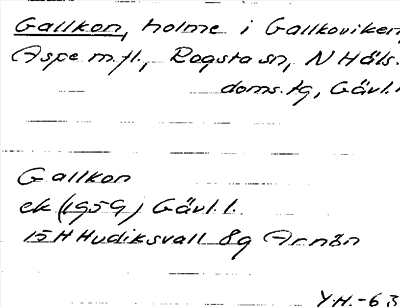 Gallkon, holme i Gallkoviken,
Aspe m.fl., Rogsta sn, N Häls.
doms.tg, Gävl.l
Gallkon
ek (1959) Gävl.l.
15H Hudiksvall 8g Arnön
Y.H.-63